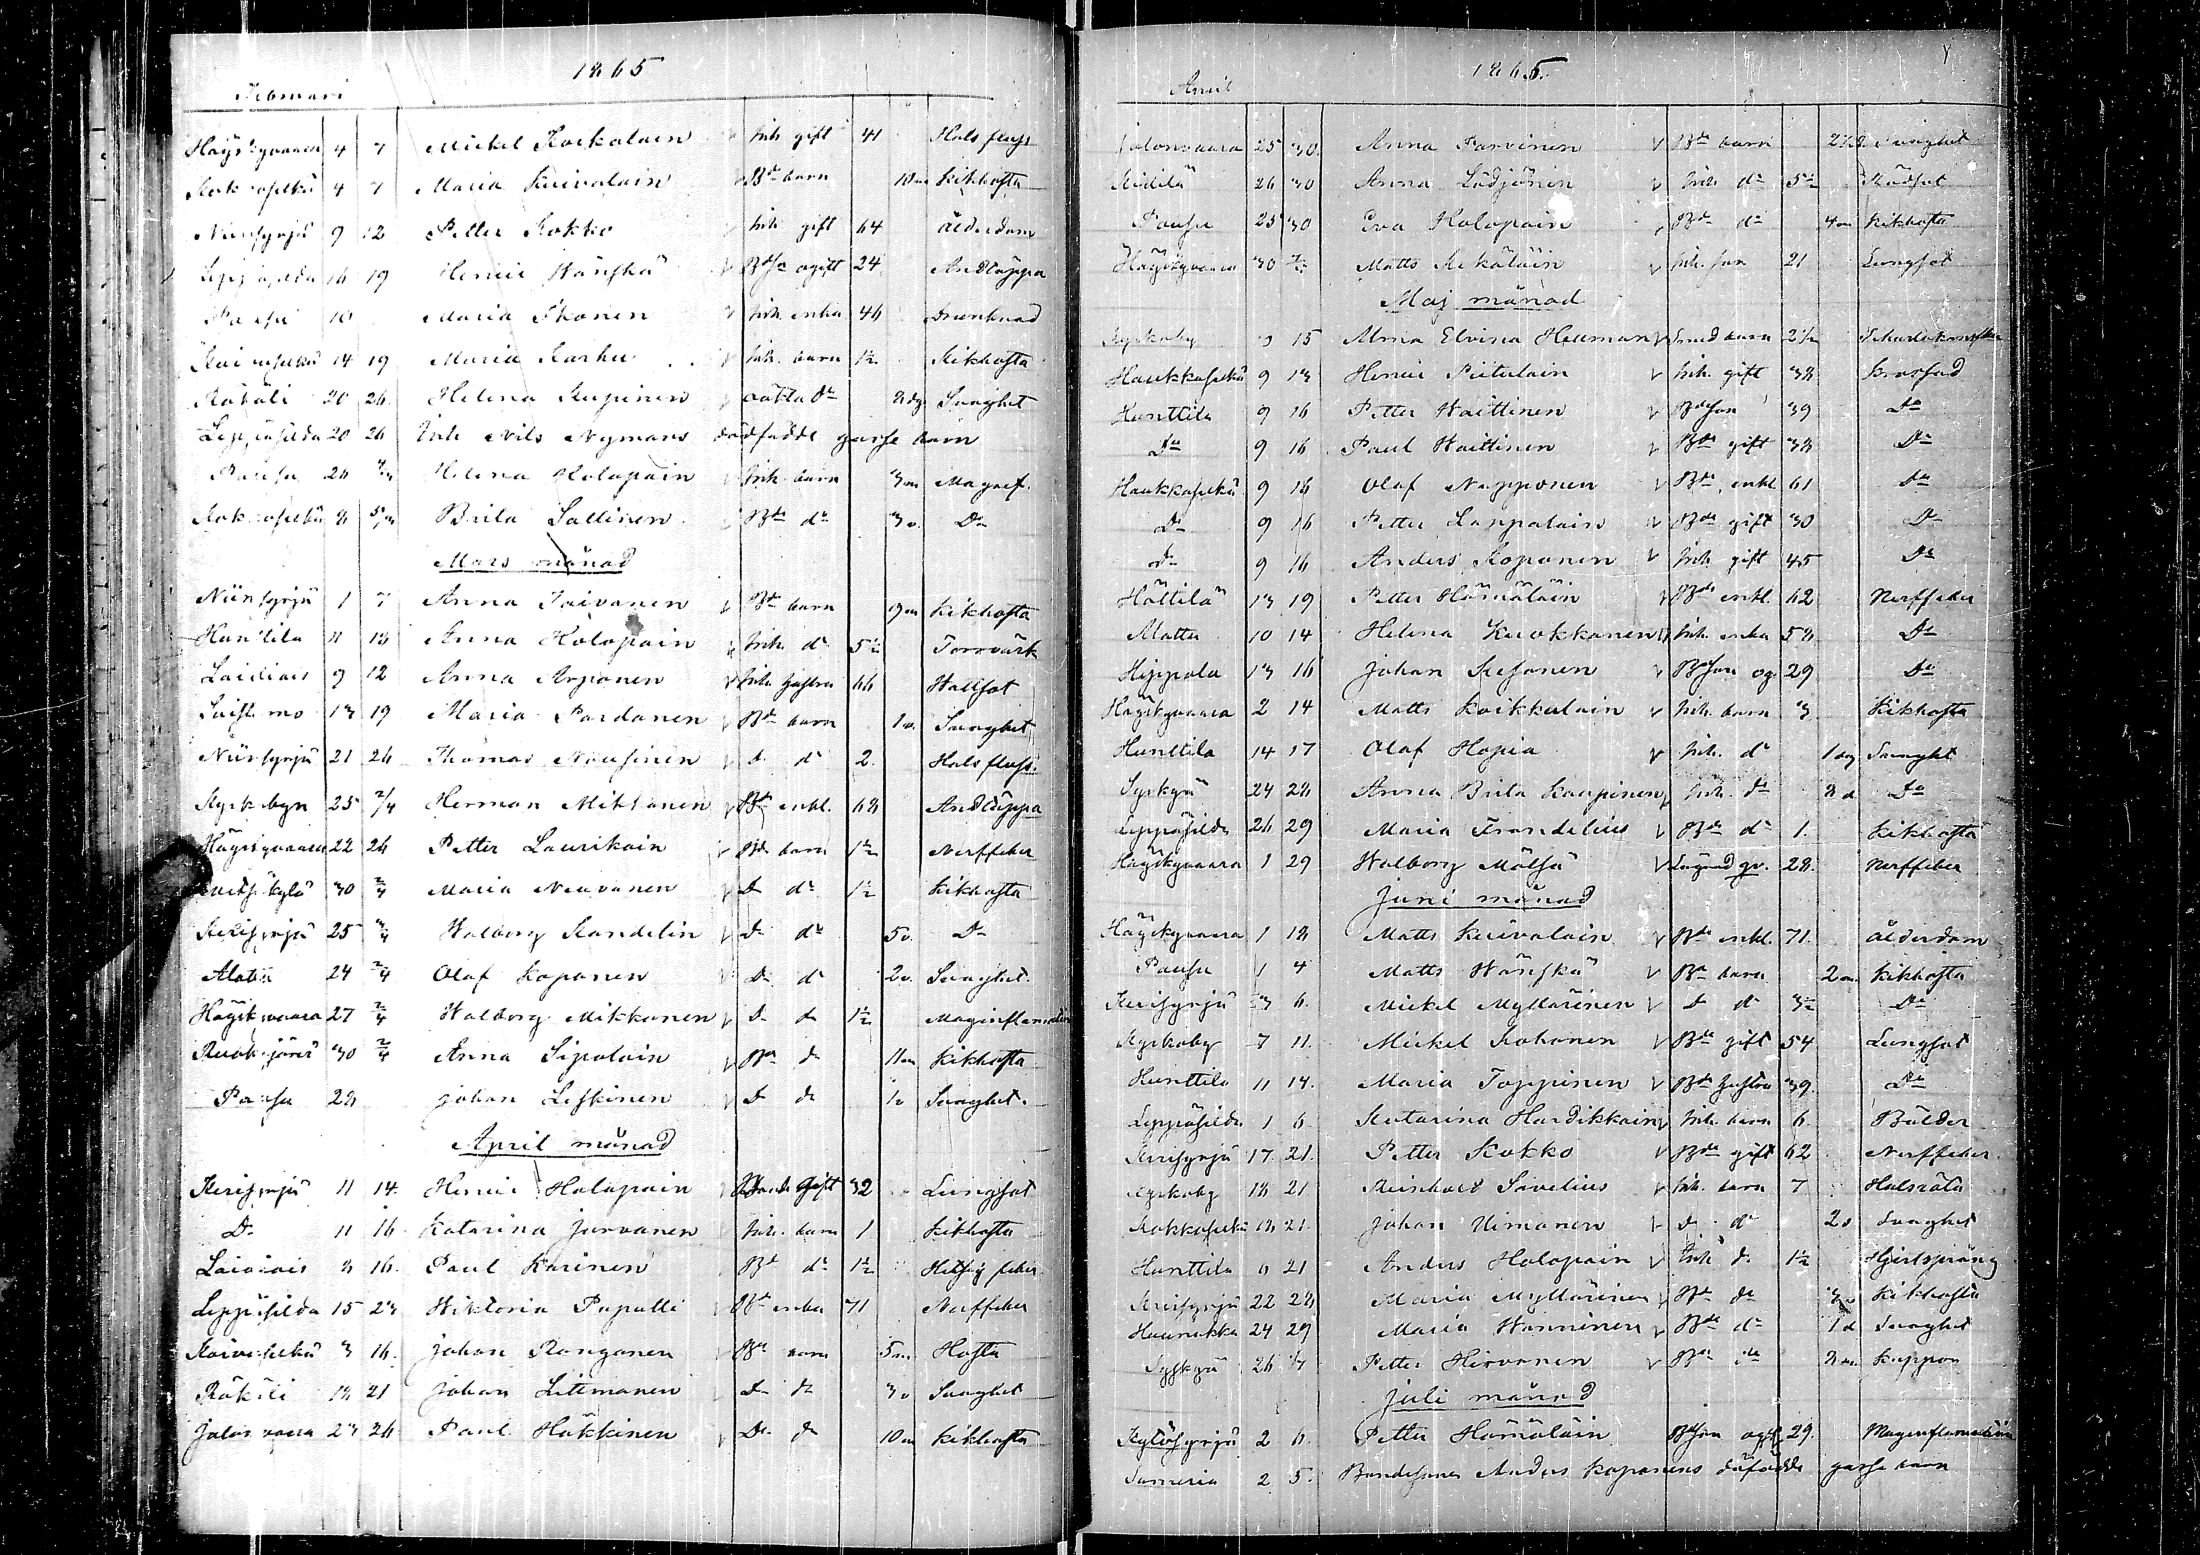 1865
Februari
Häyskyvaara 4 7 Mickel Koikalain Inh. gift 41 Halsfluss
Kokkoselkä 4 7 Maria Kuivalain Bde barn 10 m Kikhosta
Niinsyrjä 9 12 Petter Kokko Inh. gift 64 ålderdom
Leppäsilda 16 19 Henric Wänskä ogift 24 Andtäppa
Pausu 10 Maria Ikonen Inh. enka 46
Koivuselkä 14 19 Maria Karhu Inh. barn 1½ Kikhosta
Räkäli 20 26 Helena Kupinen oäkta do dg. Svaghet
Leppäsilda 20 26 Inh. Nils Nymans dödfödde gosse barn
Pausu 26 Helena Holopain Inh. barn 3 m Magref.
Kokkoselkä Brita Sallinen Bde do 3 v. Do
Mars månad
Niinsyrjä 1 7 Anna Toivanen Bde barn 9 m Kikhosta
Hunttila 11 18 Anna Holopain Inh. do 5½ Torrvärk
Laidiais 9 12 Anna Arponen Inh. hustru 66 Hallsot
Suistamo 13 19 Maria Pardanen Bde barn 1 v. Svaghet
Niinsyrjä 21 26 Thomas Nousinen D. do 2 Halsfluss.
Kyrkobyn 25 2/4 Herman Mikkonen Bde enkl. 68 Andtäppa
Häyskyvaara 22 26 Petter Laurikain Bde barn 1½ Nerffeber
30 2/4 Maria Neuvonen D. do 1½ Kikhosta
Kerisyrjä 25 Walborg Kandelin D. do 5 v. Do
Alattu 24 2/4 Olof Koponen D. do 2 v. Svaghet.
Häyskyvaara 27 2/4 Walborg Mikkonen D. do 1½ Maginflamation
Ruokojärvi 30 2/4 Anna Sipolain Bde do 11 m Kikhosta
Pausu 28 Johan Leskinen D. do 1 v Svaghet.
April månad
Kerisyrjä 11 14. Henric Holopain Bonde Gift 32 Lungsot
Do 11 16 Katarina Jorvanen Inh. barn 1 Kikhosta
Laidiais 8 16. Paul Karinen Bde do 1½ Hetsig feber
Leppäsilda 15 23 Wiktoria Poputti Bde enka 71 Nerffeber
Koivuselkä 3 16. Johan Ronganen Bde barn 5 m. Hosta
Räkäli 18 21 Johan Littmanen D. do 3 v Svaghet
Jalonvaara 23 26 Paul Häkkinen D. do 10 m Kikhosta
1865.
April
Jalonvaara 25 30. Anna Parvinen Bde barn Svaghet
Kidilä 26 30 Anna Lädjönen Inh. do 5½ Rödsot
Pausu 25 30 Eva Holopain Bde do 4 m Kikhosta
Häyskyvaara 30 Matts Kekäläin Inh. son 21 Lungsot
Maj månad
Kyrkoby 15 Alma Elvina Heuman Smed barn 2½
Haukkaselkä 9 13 Henric Piitulain Inh. gift 38 krossad
Hunttila 9 16 Petter Waittinen Bdeson 39 Do
Do 9 16 Paul Waittinen Bde gift 38 Do
Haukkaselkä 9 16 Olof Nupponen Bde enkl 61 Do
Do 9 16 Petter Lappalain Bde gift 30 Do
do 9 16 Anders Koponen Inh. gift 45 Do
Hättilä 13 19 Petter Hämäläin Bde enkl. 62 Nerffeber
Alattu 10 14 Helena Kuokkanen Inh. enka 58 Do
Hippola 13 16 Johan Kesonen Bdeson og. 29 Do
Häyskyvaara 2 14 Matts Koikkalain Inh. barn 3 Kikhosta
Hunttila 14 17 Olof Hopia Inh. do 1 dg Svaghet
Syskyä 24 28 Anna Brita Kaupinen Inh. do 8 d Do
Leppäsilda 26 29 Maria Frandelius Bde do 1. Kikhosta
Häyskyvaara 1 29 Walborg Mälsä 28. Nerffeber
Juni månad
Häyskyvaara 1 18 Matts Kuivalain Bde enkl. 71. ålderdom
Pausu 1 4 Matts Wänskä Bde barn 2 m Kikhosta
Kerisyrjä 3 6. Mickel Myllärinen D do 3½ Do
Kyrkoby 7 11. Mickel Kohonen Bde gift 54 Lungsot
Hunttila 11 14. Maria Toppinen Bde hustru 39. Do
Leppäsilda 1 6 Katarina Hardikkain Inh. barn 6. Bölder
Kerisyrjä 17 21. Petter Kokko Bde gift 62 Nerffeber.
Kyrkoby 18 21 Reinhold Savelius Inh. barn 7 Halsröta
Kokkoselkä 18 21. Johan Uimonen D. do 2 v Svaghet
Hunttila 21 Anders Holopain Inh. do 1½ Hjertsprång
Kerisyrjä 22 28 Maria Myllärinen Bde do Kikhosta
Huunukka 24 29 Maria Wonninen Bde do 1 d Svaghet
Syskyä 26 Petter Hirvonen Bde do 8 m. Koppor
Juli månad
Kyläsyrjä 2 6. Petter Hämäläin Bdeson ogift 29. Maginflamation
Someria 2 5. Bondesonen Anders Koponens dödfödde gosse barn